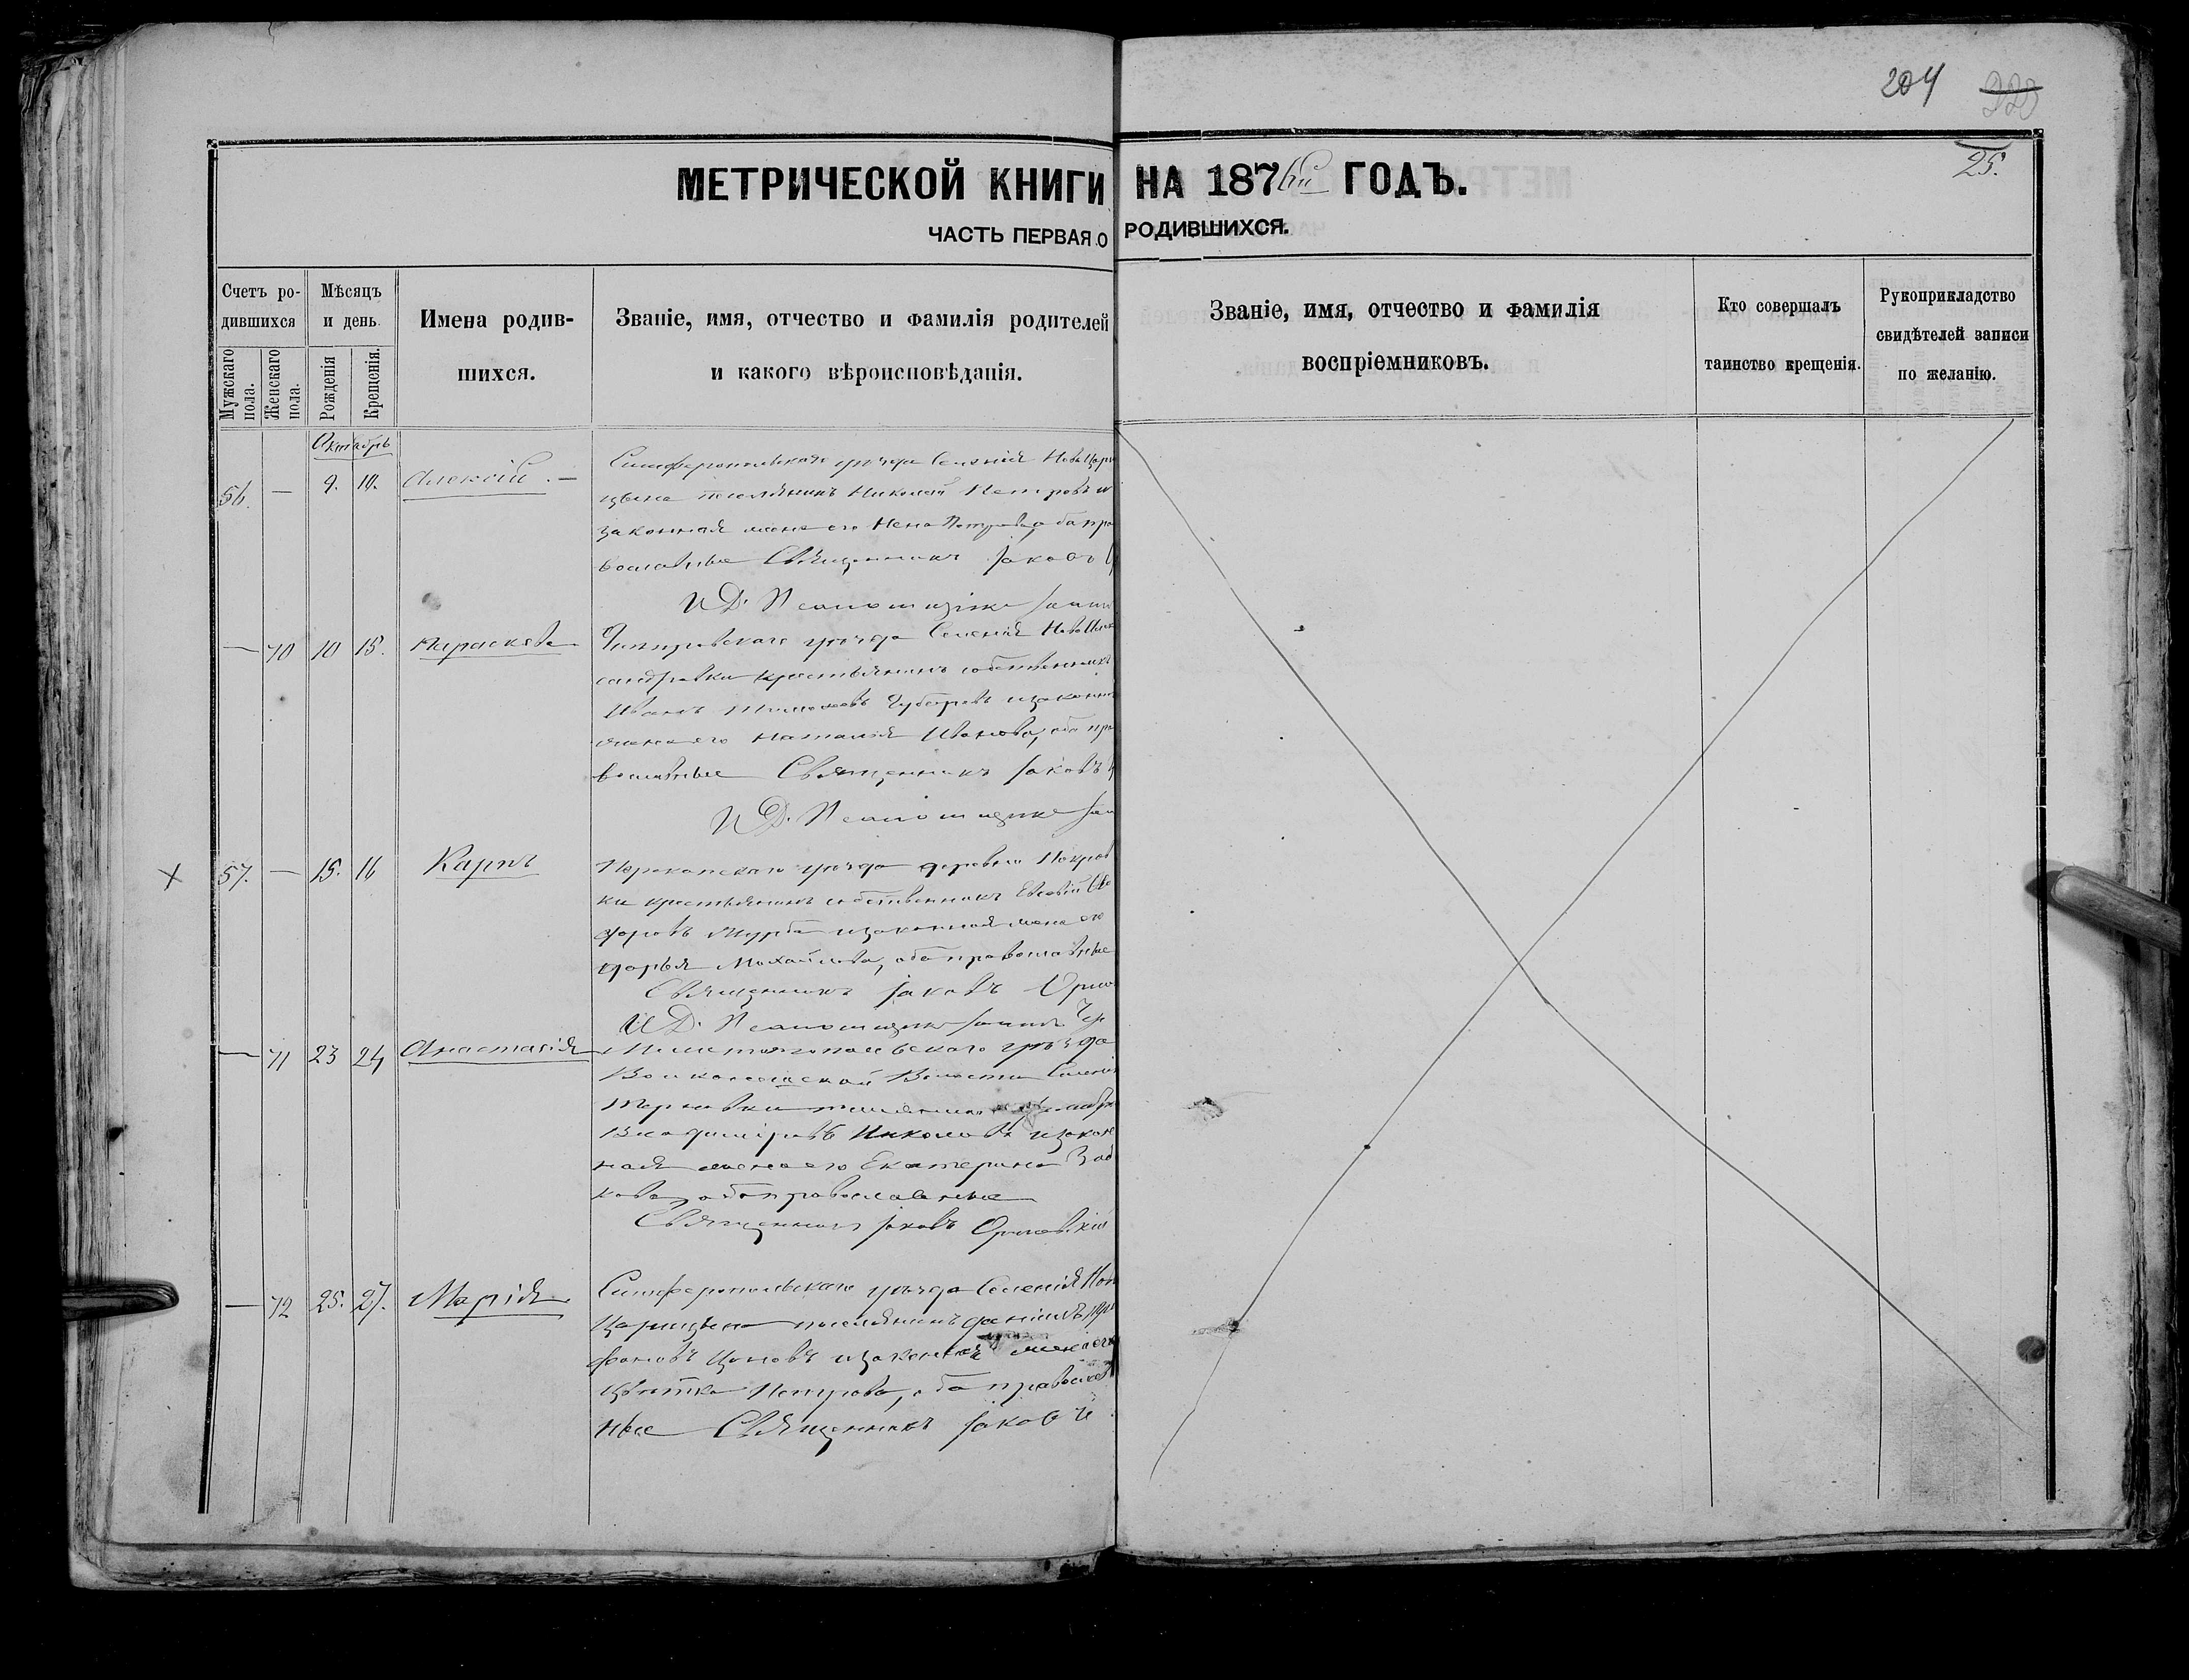 204
25.
МЕТРИЧЕСКОЙ КНИГИ НА 1876й ГОДЪ.
ЧАСТЬ ПЕРВАЯ О РОДИВШИХСЯ.
Счетъ ро-
дившихся
Мужскаго пола.
Женскаго пола.
Мѣсяцъ
и день
Рожденія
Крещенія.
Имена родив-
шихся.
Званіе, имя, отчество и фамилія родителей
и какого вѣроисповѣданія.
Званіе, имя, отчество и фамилія
воспріемниковъ.
Кто совершалъ
таинство крещенія.
Рукоприкладство
свидѣтелей записи
по желанію.
Октябрь
56. — 9. 10. Алексій. —
Симферопольскаго уѣзда Селенія Ново Цари
цына поселянинъ Николай Петровъ и
законная жена его Нена Петрова, оба пра
вославные Священникъ Іаковъ
И.Д. Псаломщика
— 70 10 15. Параскева
Днѣпровскаго уѣзда Селенія Ново
сандровки крестьянинъ собственникъ
Иванъ и законн
жена его Наталія Иванова, оба пра
вославные Священникъ Іаковъ
И.Д. Псаломщика
57. — 15. 16 Карпъ
Перекопскаго уѣзда деревни Покров
ки крестьянинъ собственникъ Евсевій
форовъ и законная жена его
Дарья Михайлова, оба православные
Священникъ Іаковъ
И.Д. Псаломщика
— 71 23 24 Анастасія
Мелитопольскаго уѣзда
Волости Селенія
Владиміровъ Николовъ и закон
ная жена его Екатерина
кова, оба православные
Священникъ Іаковъ Орловскій
— 72 25. 27. Марія
Симферопольскаго уѣзда Селенія Нов
Царицына поселянинъ
фановъ Цоновъ и законная жена его
Цвѣтка Петрова, оба православ
ные Священникъ Іаковъ